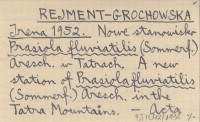 REJMENT-GROCHOWSKA
Irena 1952. Nowe stanowisko
Prasiola fluviatilis (Sommerf.)
Aresch. w Tatrach. A new
station of Prasiola fluviatilis
(Sommerf.) Aresch. in the
Tatra Mountains. Acta